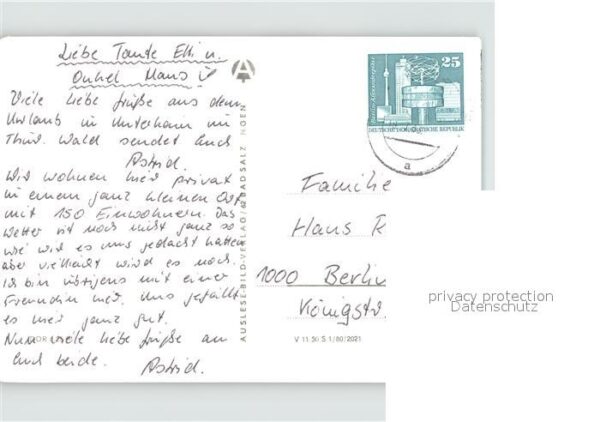 Liebe Tante Elli u.
Onkel Hans!
Viele liebe Grüße aus dem
Urlaub in Unterhain im
Thür. Wald sendet Euch
Astrid.
Wir wohnen hier privat
in einem ganz kleinen Ort
mit 150 Einwohnern. Das
Wetter ist noch nicht ganz so
wie wir es uns gedacht hatten
aber vielleicht wird es noch.
Ich bin übrigens mit einer
Freundin hier. Uns gefällt
es hier ganz gut.
Nun viele liebe Grüße an
Euch beide.
Astrid.
AUSLESE-BILD-VERLAG/62 BAD SALZUNGEN
25
DEUTSCHE DEMOKRATISCHE REPUBLIK
a
Familie
Hans R
1000 Berlin
Königstr.
V 11 50 S 1/80/2021
privacy protection
Datenschutz